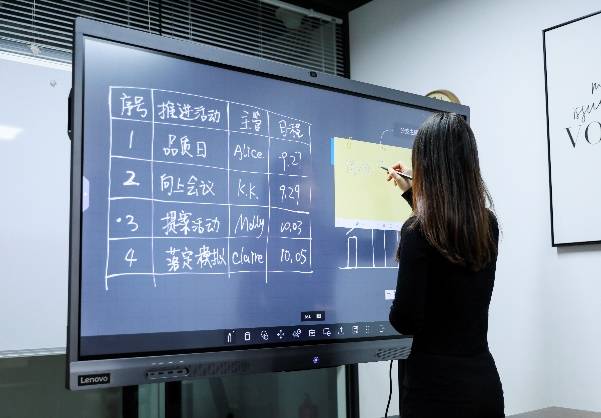 序号 推进活动 主管 日程
1 品质日 Alice 9.27
2 向上会议 K.K. 9.29
3 提案活动 Molly 10.03
4 落定模拟 Claire 10.05
Lenovo
VO